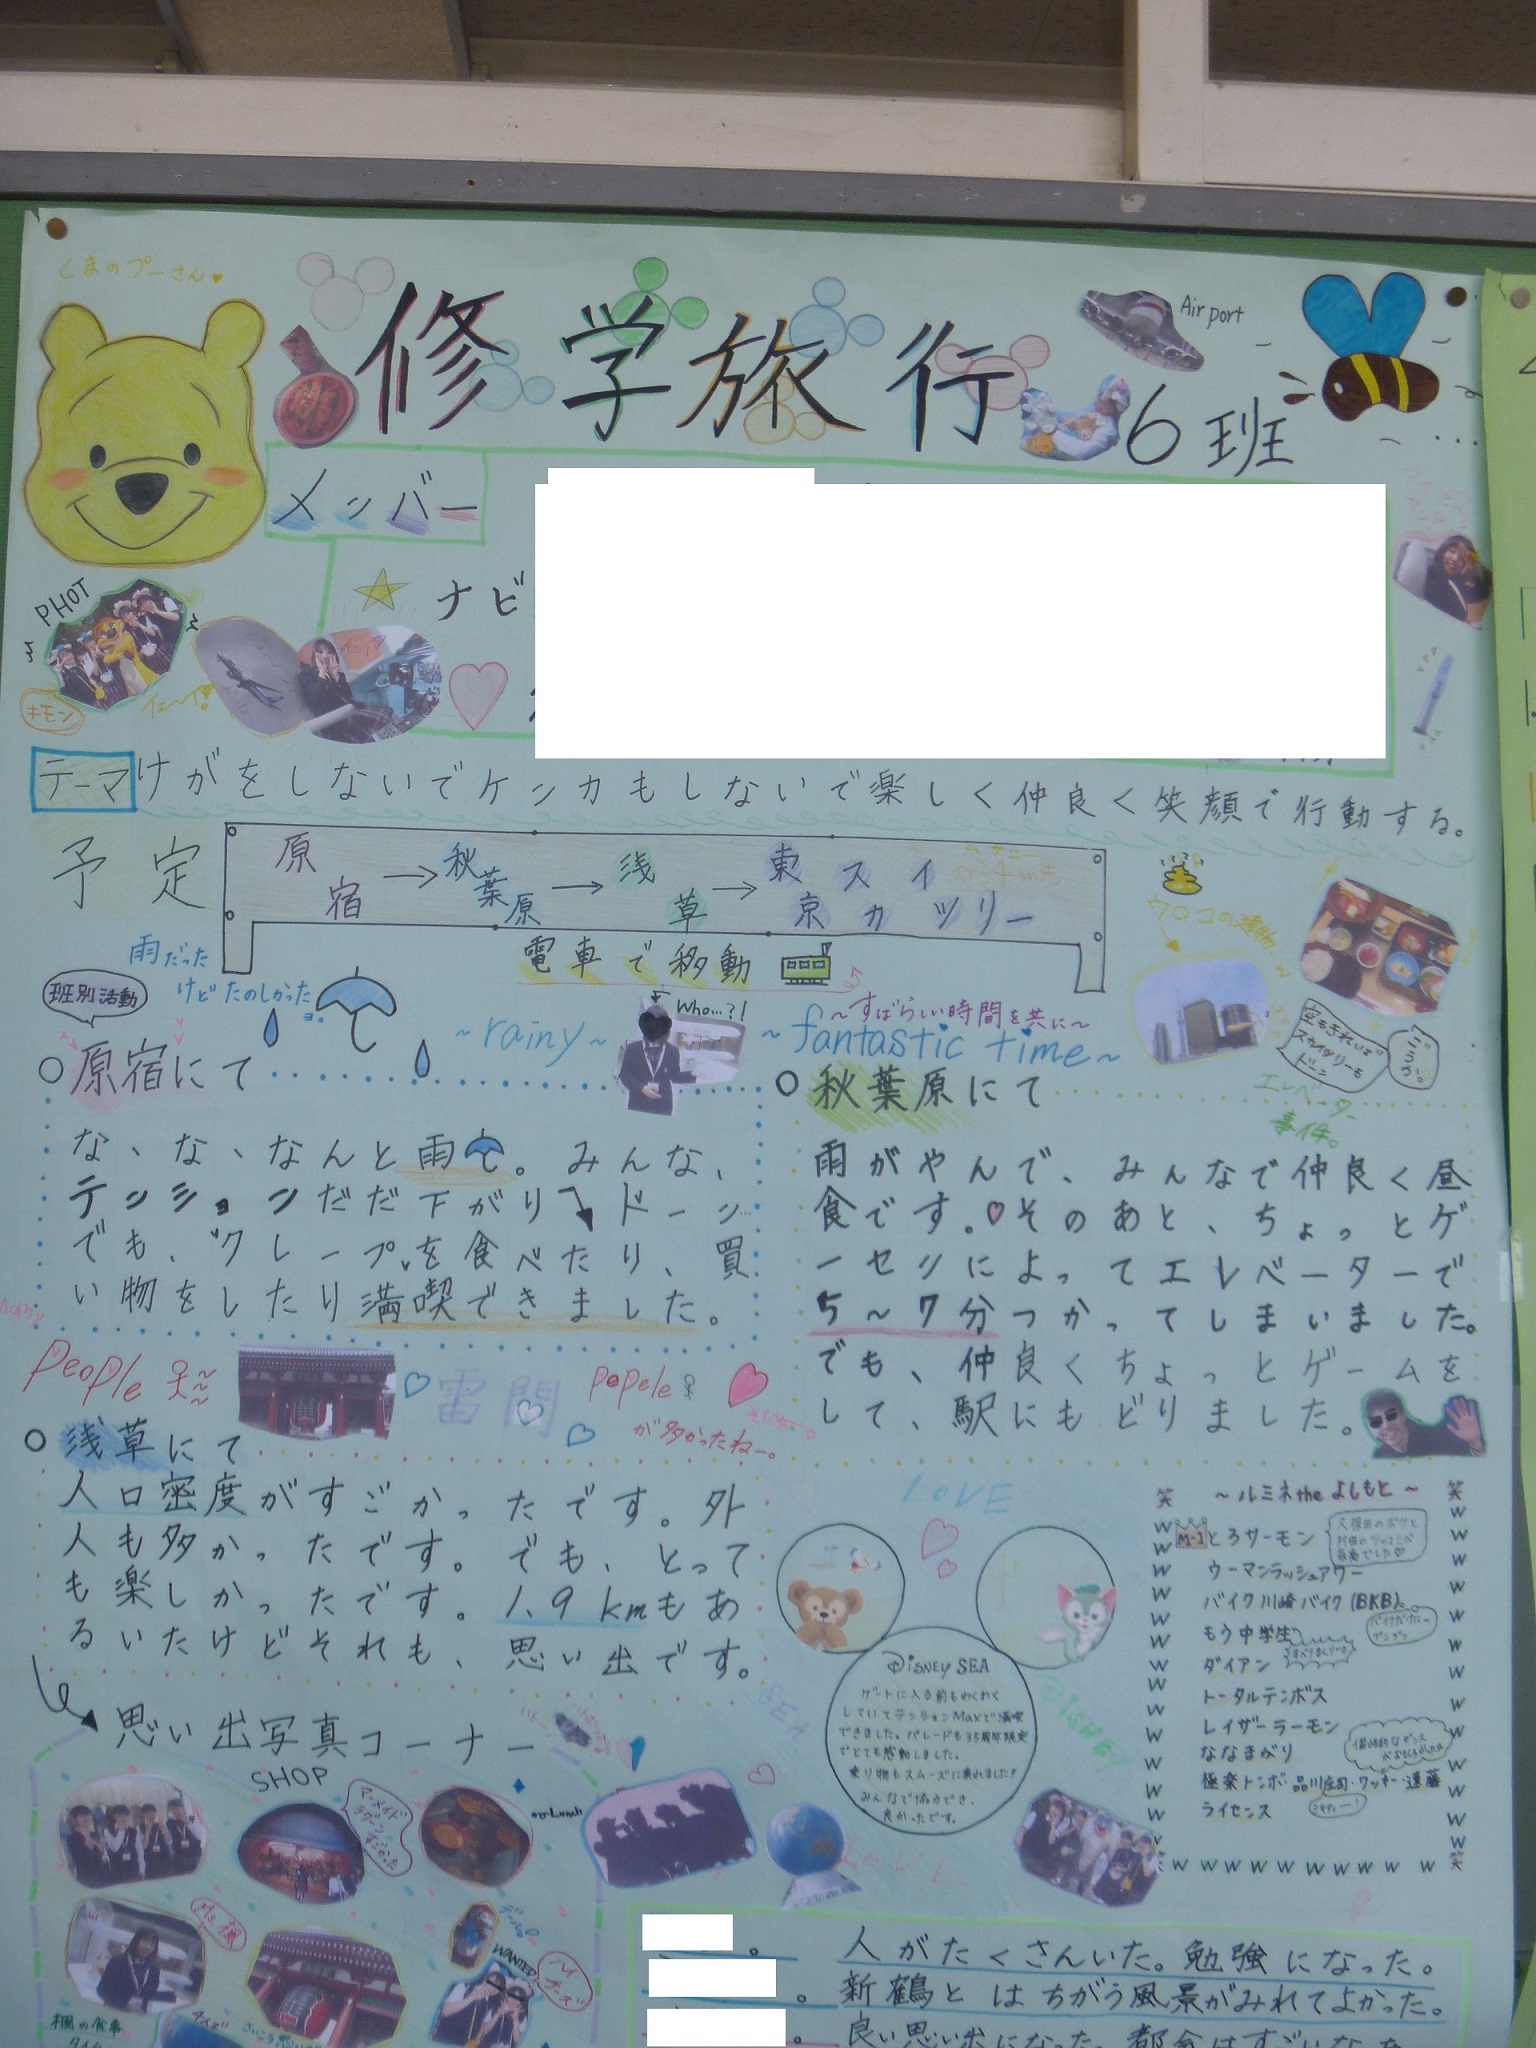 くまのプーさん♥
修学旅行
6班
Airport
メンバー
PHOT
ナビ
キモン
イェーイ!
テーマ けがをしないでケンカもしないで楽しく仲良く笑顔で行動する。
予定
原宿→秋葉原→浅草→東京スカイツリー
電車で移動
雨だった
けどたのしかったョ。
班別活動
~rainy~
Who...?!
~すばらしい時間を共に~
~fantastic time~
空もきれいでスカイツリーもドーン
ごうか。
エレベーター
事件。
○原宿にて
な、な、なんと雨。みんな、
テンションだだ下がり ドーン…
でも、クレープを食べたり、買
い物をしたり満喫できました。
○秋葉原にて
雨がやんで、みんなで仲良く昼
食です。♡そのあと、ちょっとゲ
ーセンによってエレベーターで
5~7分つかってしまいました。
でも、仲良くちょっとゲームを
して、駅にもどりました。
People
雷門
popele
が多かったねー。
○浅草にて
人口密度がすごかったです。外
人も多かったです。でも、とって
も楽しかったです。1.9kmもあ
るいたけどそれも、思い出です。
LOVE
DISNEY SEA
ゲートに入る前もわくわく
していてテンションMaxで満喫
できました。パレードも35周年限定
でとても感動しました。
乗り物もスムーズに乗れました!
みんなで協力でき、
良かったです。
SEA
笑 ~ルミネtheよしもと~ 笑
M-1 とろサーモン
久保田のボケと
村田のツッコミが
最高でした♡
ウーマンラッシュアワー
バイク川崎バイク(BKB)。
もう中学生
ダイアン
トータルテンボス
レイザーラーモン
ななまがり
極楽トンボ・品川庄司・ワッキー・遠藤
ライセンス
笑 w w w w w w w w w w 笑
思い出写真コーナー
SHOP
マーメイドラグーンすごかった
Lunch
LOVE
WANTED
ハイチーズ
人がたくさんいた。勉強になった。
新鶴とはちがう風景がみれてよかった。
良い思い出になった。都会はすごいなあ